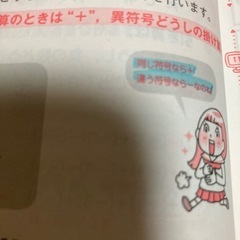 行います。
算のときは“＋”，異符号どうしの掛け算
同じ符号なら＋
違う符号なら－なのね